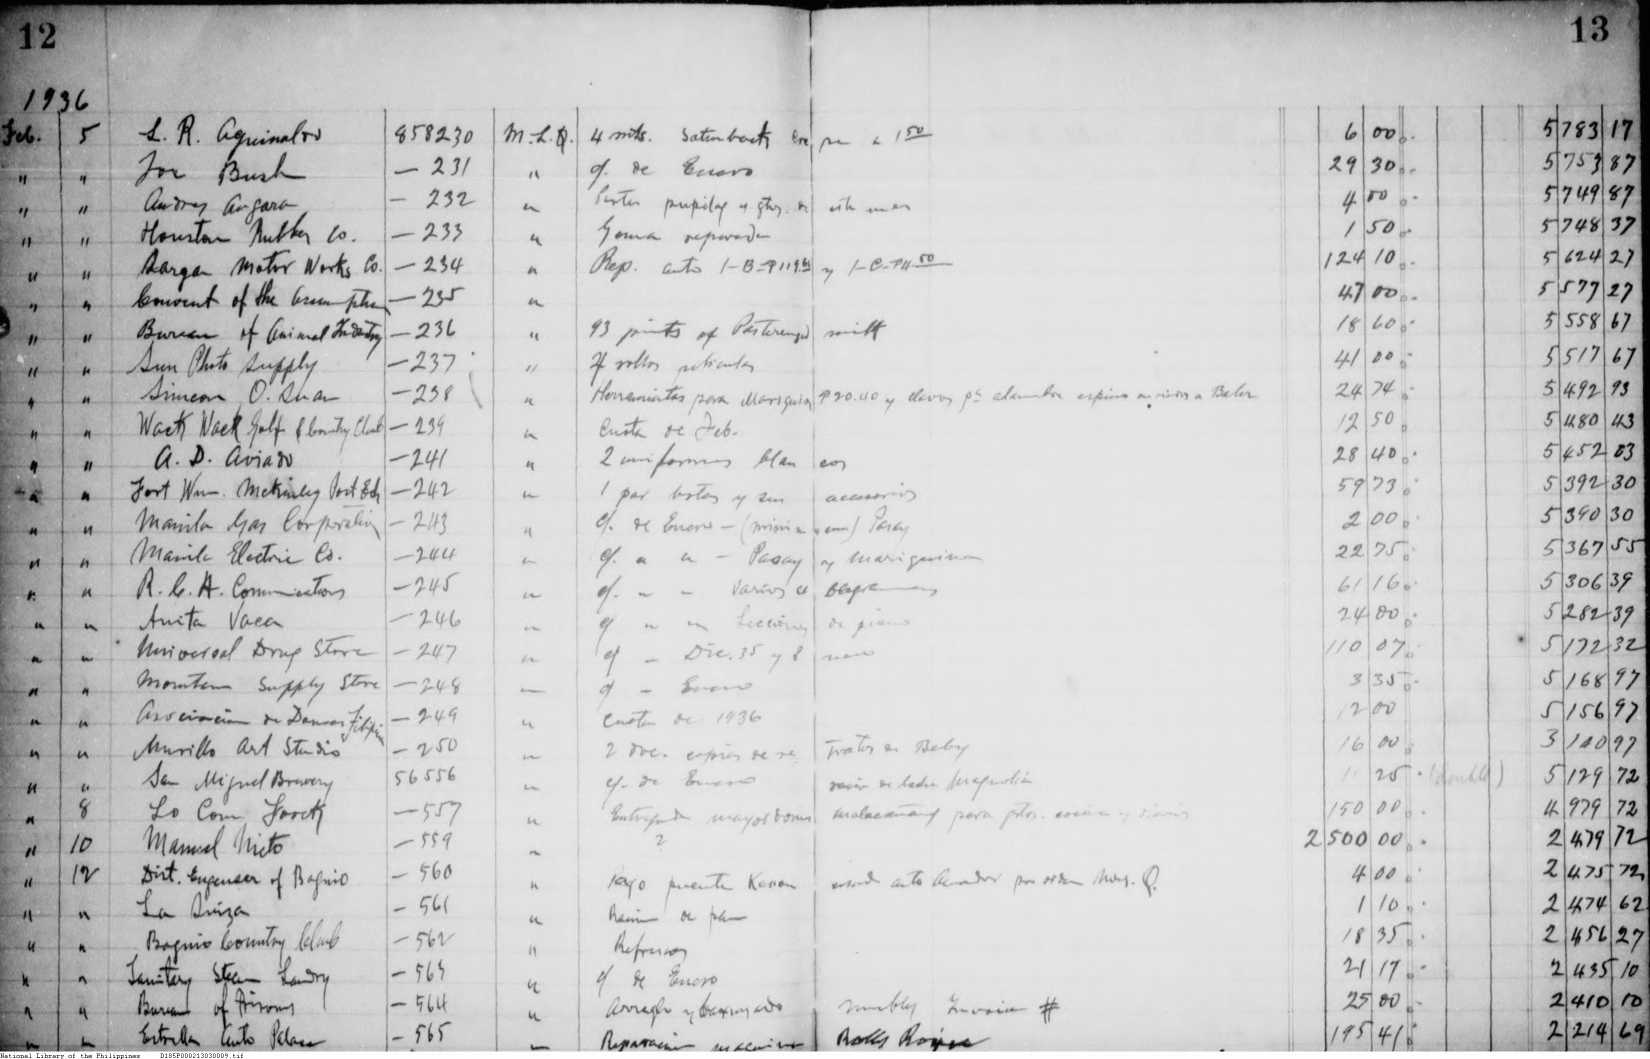 12 13
1936
Feb. 5 L. R. Aguinaldo 858230 M.L.Q. 4 mts. a 1 50 6 00 5783 17
" " Joe Bush — 231 " c/. de Enero 29 30 5753 87
" " Andres Angara — 232 " 4 00 5749 87
" " Houston Rubber Co. — 233 " Goma reparada 1 50 5748 37
" " Bargan Motor Works Co. — 234 " Rep. auto 1-B-P119.60 y 1-C-P4.50 124 10 5624 27
" " Convent of the Assumption — 235 " 47 00 5577 27
" " Bureau of Animal Industry — 236 " 93 pints of Pasteurized milk 18 60 5558 67
" " Sun Photo Supply — 237 " rollos peliculas 41 00 5517 67
" " Simeon O. — 238 " Herramientas para Mariquina P20.40 y clavos pª alambre espino 24 74 5492 93
" " Wack Wack Golf & Country Club — 239 " Cuota de Feb. 12 50 5480 43
" " A. D. Aviado — 241 " 2 uniformes blancos 28 40 5452 03
" " Fort Wm. McKinley Post Exh — 242 " 1 par botas y sus accesorios 59 73 5392 30
" " Manila Gas Corporation — 243 " c/. de Enero — Pasay 2 00 5390 30
" " Manila Electric Co. — 244 " c/. " " — Pasay y Mariquina 22 75 5367 55
" " R. C. A. Communications — 245 " c/. " " Varios 61 16 5306 39
" " Anita Vaca — 246 " c/ " " Lecciones de piano 24 00 5282 39
" " Universal Drug Store — 247 " c/ — Dic. 35 y Enero 110 07 5172 32
" " Mountain Supply Store — 248 " c/ — Enero 3 35 5168 97
" " Asociacion de Damas Filipinas — 249 " Cuota de 1936 12 00 5156 97
" " Murillo Art Studio — 250 " 2 doc. copias de retratos de Baby 16 00 3140 97
" " San Miguel Brewery 56556 " c/. de Enero leche Magnolia 11 25 (double) 5129 72
" 8 Lo Com Jock — 557 " Entregado mayordomo Malacañang para gtos. cocina y 150 00 4979 72
" 10 Manuel Nieto — 559 " ? 2500 00 2479 72
" 12 Dist. Engineer of Baguio — 560 " Pago puente Kennon auto por orden Mrs. Q. 4 00 2475 72
" " La Suiza — 561 " de pan 1 10 2474 62
" " Baguio Country Club — 562 " Refrescos 18 35 2456 27
" " Sanitary Steam Laundry — 563 " c/ de Enero 21 17 2435 10
" " Bureau of Prisons — 564 " Arreglo y barnizado muebles Invoice # 25 00 2410 10
" " Estrella Auto Palace — 565 " Reparacion maquina Rolls Royce 195 41 2214 69
National Library of the Philippines D185P000213030009.tif